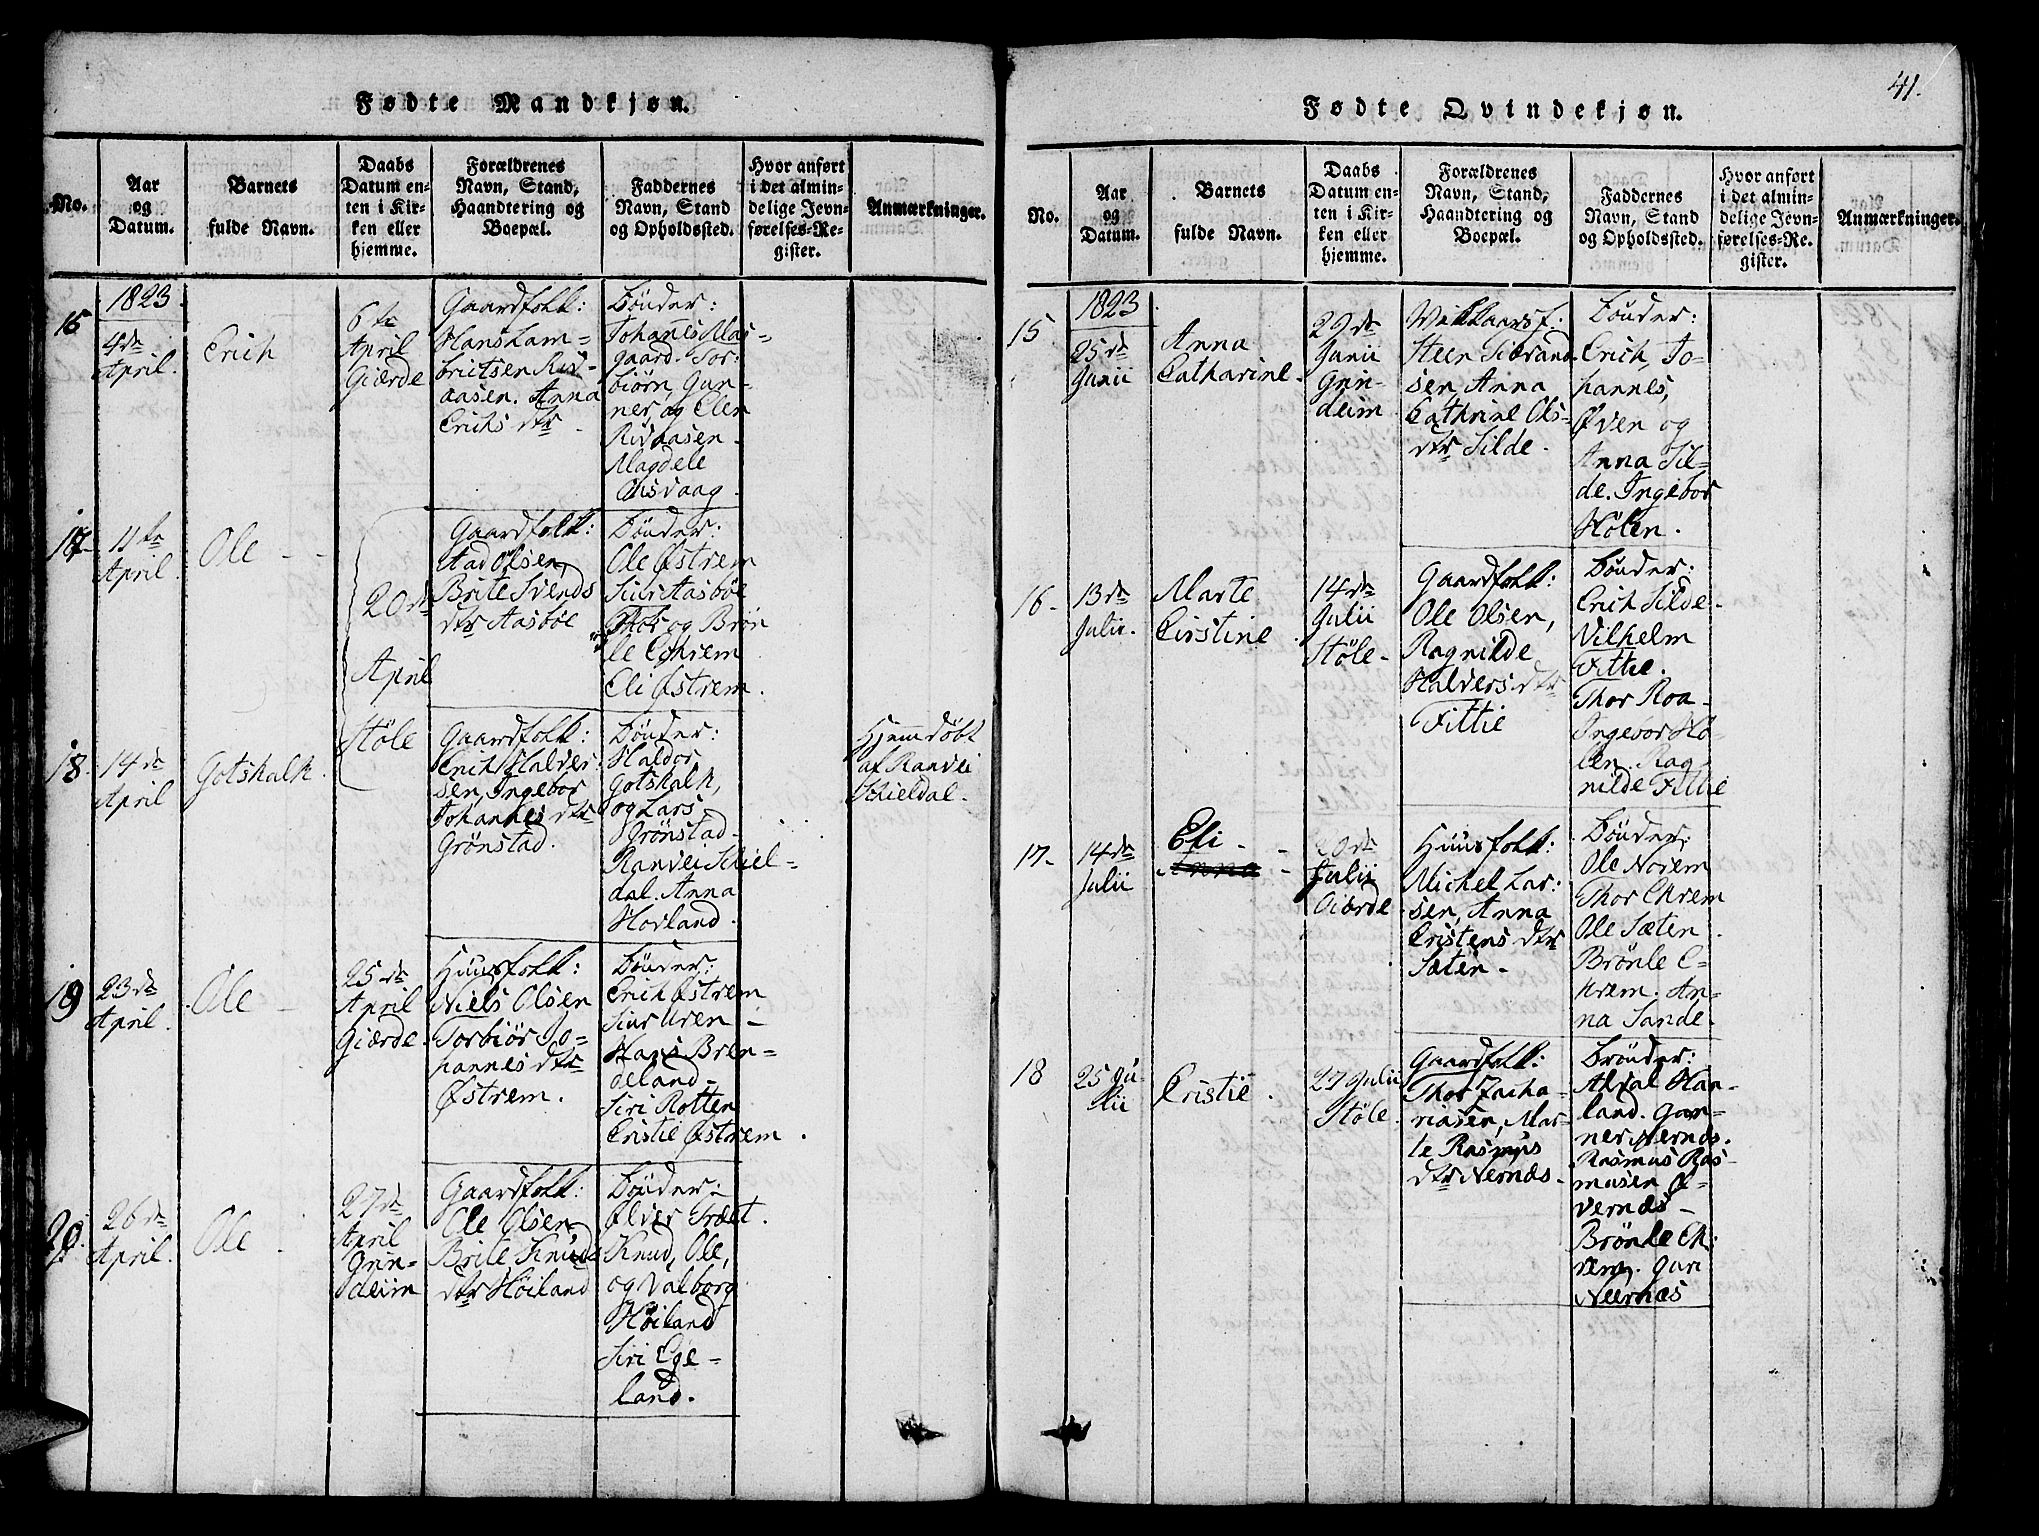 41.
Fødte Mandkjøn.
No.
Aar
og
Datum.
Barnets
fulde Navn.
Daabs
Datum en-
ten i Kir-
ken eller
hjemme.
Forældrenes
Navn, Stand,
Haandtering og
Boepæl.
Faddernes
Navn, Stand
og Opholdssted.
Hvor anført
i det almin-
delige Jevn-
førelses-Re-
gister.
Anmærkninger.
1823.
16
4de
April.
Erich
6te
April
Giærde
Gaardfolk:
Hans Lam-
britsen Rid-
aasen. Anna
Erichs dtr
Bönder:
Johanes Mas-
gaard. Tor-
biörn, Gun-
ner, og Elen
Ridaasen.
Magdele
Olsvaag.
17-
11te
April.
Ole - -
20de
April
Støle
Gaardfolk:
Aad Olsen,
Brite Svends
dtr Aasböe
Bönder:
Ole Østrem
Siur Aasböe
Thor og Brön
le Echrem
Eli Østrem.
18.
14de
April
Gotskalk.
Gaardfolk:
Erich Halver
sen, Ingebor
Johannes dtr
Grönstad.
Bönder:
Haldor,
Gotskalk,
og Lars
Grönstad-
Ranvei Schiel-
dal. Anna
Hovland.
Hjemdöbt
af Ranvei
Schieldal.
19
23de
April.
Ole -
25de
April
Giærde.
Huusfolk:
Niels Olsen
Torbiör Jo-
hannes dtr
Østrem.
Bönder:
Erich Østrem
Siur Uren -
Hans Bren-
deland-
Siri Rotten
Cristie Østrem.
20.
26de
April.
Ole -
27de
April
Grin-
deim
Gaardfolk:
Ole Olsen,
Brite Knuds
dtr Höiland
Bönder:
Ølver Træet.
Knud, Ole,
og Valborg
Höiland
Siri Ege-
land.
Fødte Qvindekjøn.
No.
Aar
og
Datum.
Barnets
fulde Navn.
Daabs
Datum en-
ten i Kir-
ken eller
hjemme.
Forældrenes
Navn, Stand,
Haandtering og
Boepæl.
Faddernes
Navn, Stand
og Opholdssted.
Hvor anført
i det almin-
delige Jevn-
førelses-Re-
gister.
Anmærkninger.
1823.
15
25de
Junii
Anna
Catharine.
29de
Junii
Grin-
deim
Steen Sibrand-
sen, Anna
Cathrine Ols-
dtr Silde.
Bönder:
Erich, Jo-
hannes,
Øven og
Anna Sil-
de. Ingebor
Hölen.
16-
13de
Julii.
Marte
Cirstine.
14de
Julii
Støle-
Gaardfolk:
Ole Olsen,
Ragnilde
Halvers dtr
Fittie
Bönder:
Erich Silde-
Vilhelm
Fittie.
Thor Roa-
Ingebor Hö-
len. Rag-
nilde Fittie
17-
14de
Julii
Eli - -
Anna -
20de
Julii
Giærde
Huusfolk:
Michel Lar-
sen, Anna
Cristens dtr
Sæten-
Bönder:
Ole Norem
Thor Ekrem
Ole Sæten.
Brönle E-
krem. An-
na Sande.
18
25 Ju-
lii
Cristie.
27 Julii
Støle.
Gaardfolk:
Thor Zacha-
riasen, Mar-
te Rasmus
dtr Nernæs.
Brönder:
Alval Han-
land. Gun-
ner Nernæs.
Rasmus Ras-
musen Ø-
vernæs-
Brönle Ek-
rem. Guri
Neernæs